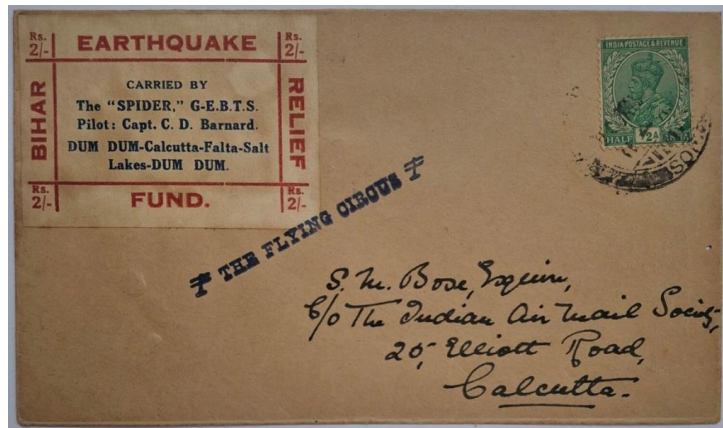 Rs. 2/-
EARTHQUAKE
Rs. 2/-
BIHAR
CARRIED BY
The "SPIDER," G-E.B.T.S.
Pilot: Capt. C. D. Barnard.
DUM DUM-Calcutta-Falta-Salt
Lakes-DUM DUM.
RELIEF
Rs. 2/-
FUND.
Rs. 2/-
INDIA POSTAGE & REVENUE
HALF ½A
THE FLYING CIRCUS
S. M. Bose, Esquire,
C/o The Indian Air Mail Society,
25, Elliott Road,
Calcutta.